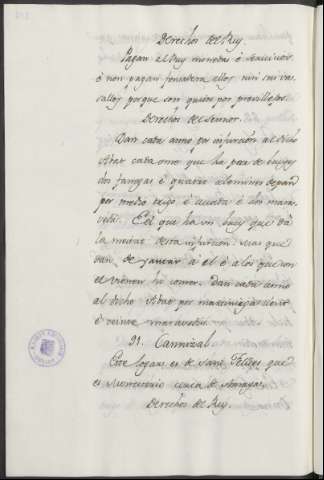 Derechos del Rey.
Pagan al Rey monedas é servicios
é non pagan fonsadera ellos nin sus vas-
sallos porque son quitos por previllejos.
Derechos del Sennor.
Dan cada anno por infurcion al dicho
Abat cada ome que ha par de bueyes
dos fanegas é quatro alomines de pan
por medio trigo é cevada é dos mara-
vedis. E el que ha un buey que dá
la meitat desta infurcion. mas que
dan de yantar á él é á los que con
el vienen hi comer. Dan cada anno
al dicho Abat por martiniega
é veinte maravedis.
91. Cannizal.
Este logar es de Sant Felizes que
es Monesterio cerca de Amaya.
Derechos del Rey.